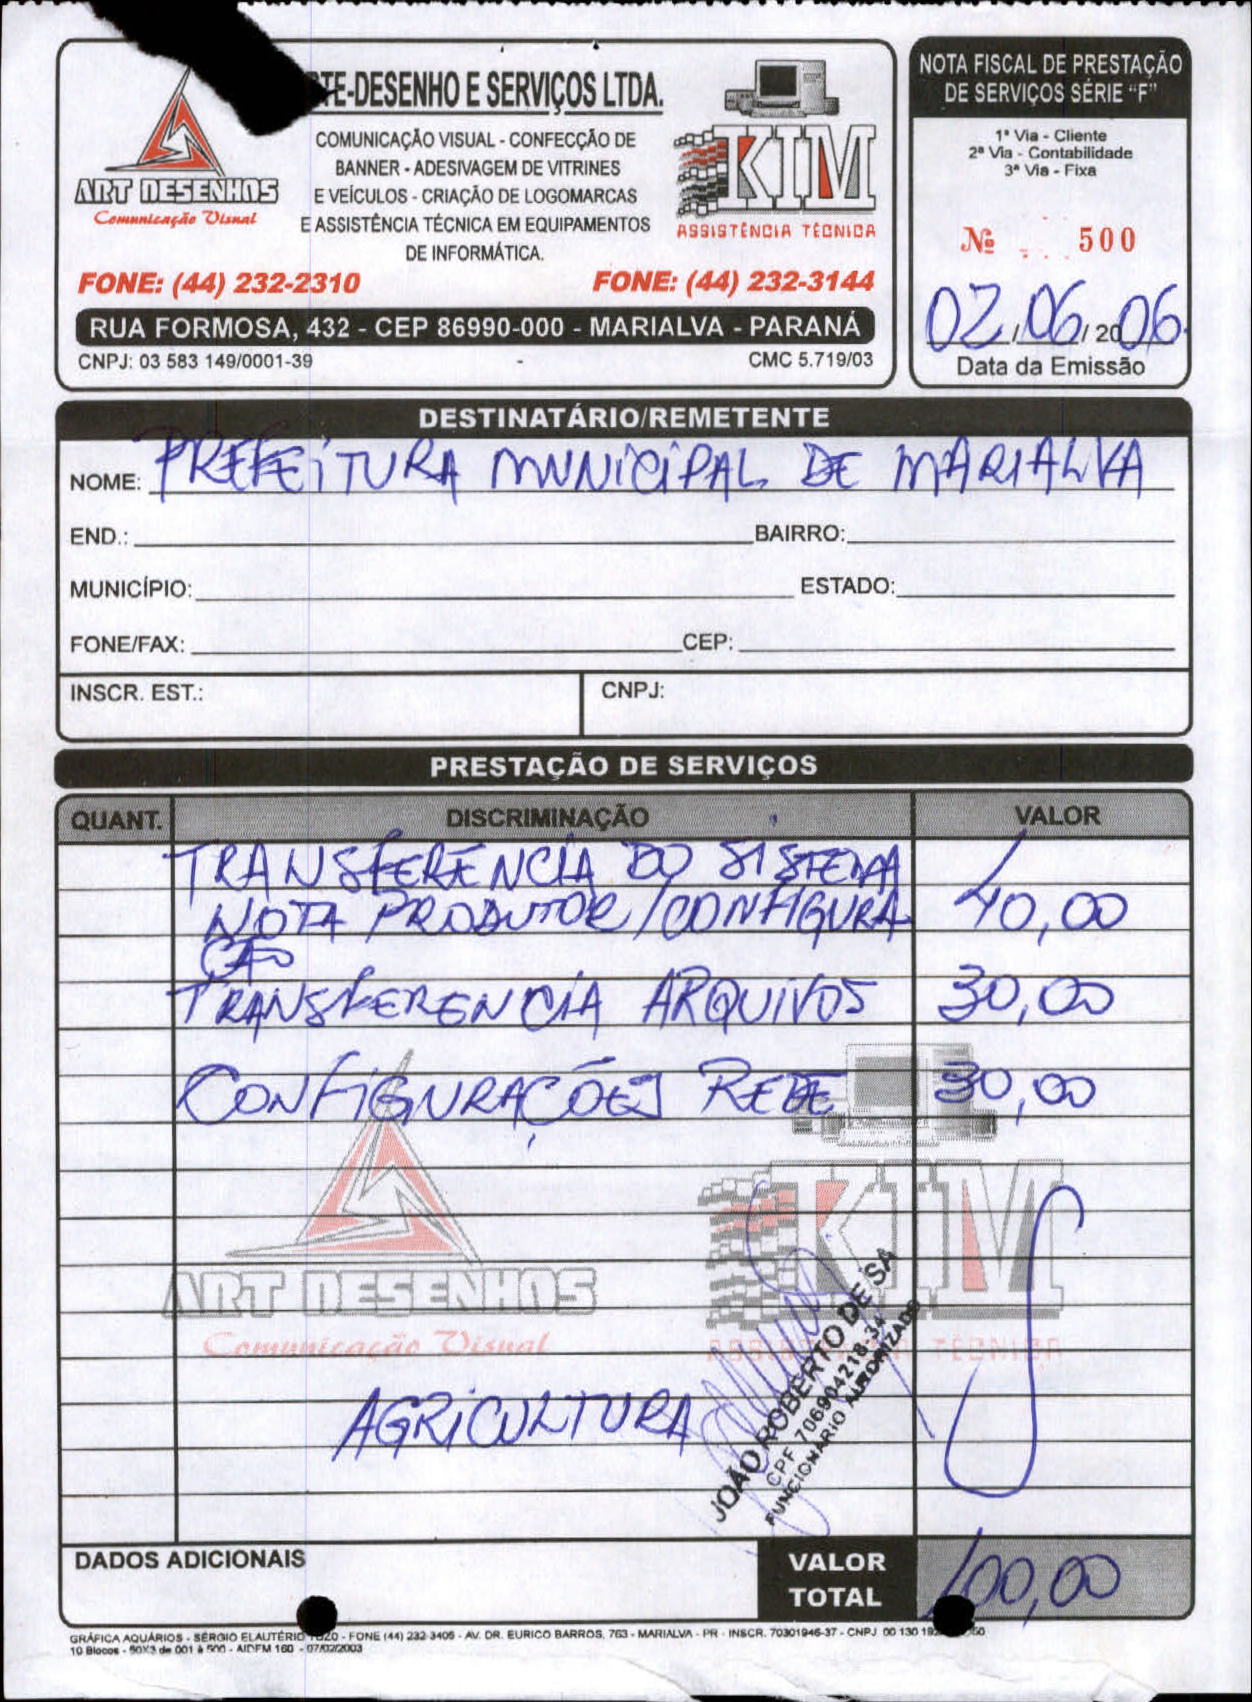 TE-DESENHO E SERVIÇOS LTDA.
COMUNICAÇÃO VISUAL - CONFECÇÃO DE
BANNER - ADESIVAGEM DE VITRINES
E VEÍCULOS - CRIAÇÃO DE LOGOMARCAS
E ASSISTÊNCIA TÉCNICA EM EQUIPAMENTOS
DE INFORMÁTICA.
ART DESENHOS
Comunicação Visual
KIM
ASSISTÊNCIA TÉCNICA
FONE: (44) 232-2310 FONE: (44) 232-3144
RUA FORMOSA, 432 - CEP 86990-000 - MARIALVA - PARANÁ
CNPJ: 03 583 149/0001-39 CMC 5.719/03
NOTA FISCAL DE PRESTAÇÃO
DE SERVIÇOS SÉRIE "F"
1ª Via - Cliente
2ª Via - Contabilidade
3ª Via - Fixa
Nº 500
02/06/2006
Data da Emissão
DESTINATÁRIO/REMETENTE
NOME: PREFEITURA MUNICIPAL DE MARIALVA
END.: BAIRRO:
MUNICÍPIO: ESTADO:
FONE/FAX: CEP:
INSCR. EST.: CNPJ:
PRESTAÇÃO DE SERVIÇOS
QUANT. DISCRIMINAÇÃO VALOR
TRANSFERÊNCIA DO SISTEMA
NOTA PRODUTOR/CONFIGURA 40,00
ÇÃO
TRANSFERENCIA ARQUIVOS 30,00
CONFIGURAÇÕES REDE 30,00
KIM
ART DESENHOS
Comunicação Visual
ASSISTÊNCIA TÉCNICA
AGRICULTURA
JOÃO ROBERTO DE SA
CPF 706904218-34
FUNCIONARIO AUTORIZADO
DADOS ADICIONAIS
VALOR
TOTAL 100,00
GRÁFICA AQUÁRIOS - SÉRGIO ELAUTÉRIO - FONE (44) 232-3405 - AV. DR. EURICO BARROS, 763 - MARIALVA - PR - INSCR. 70301946-37 - CNPJ 00 130
10 Blocos - 50X3 de 001 à 500 - AIDFM 160 - 07/02/2003